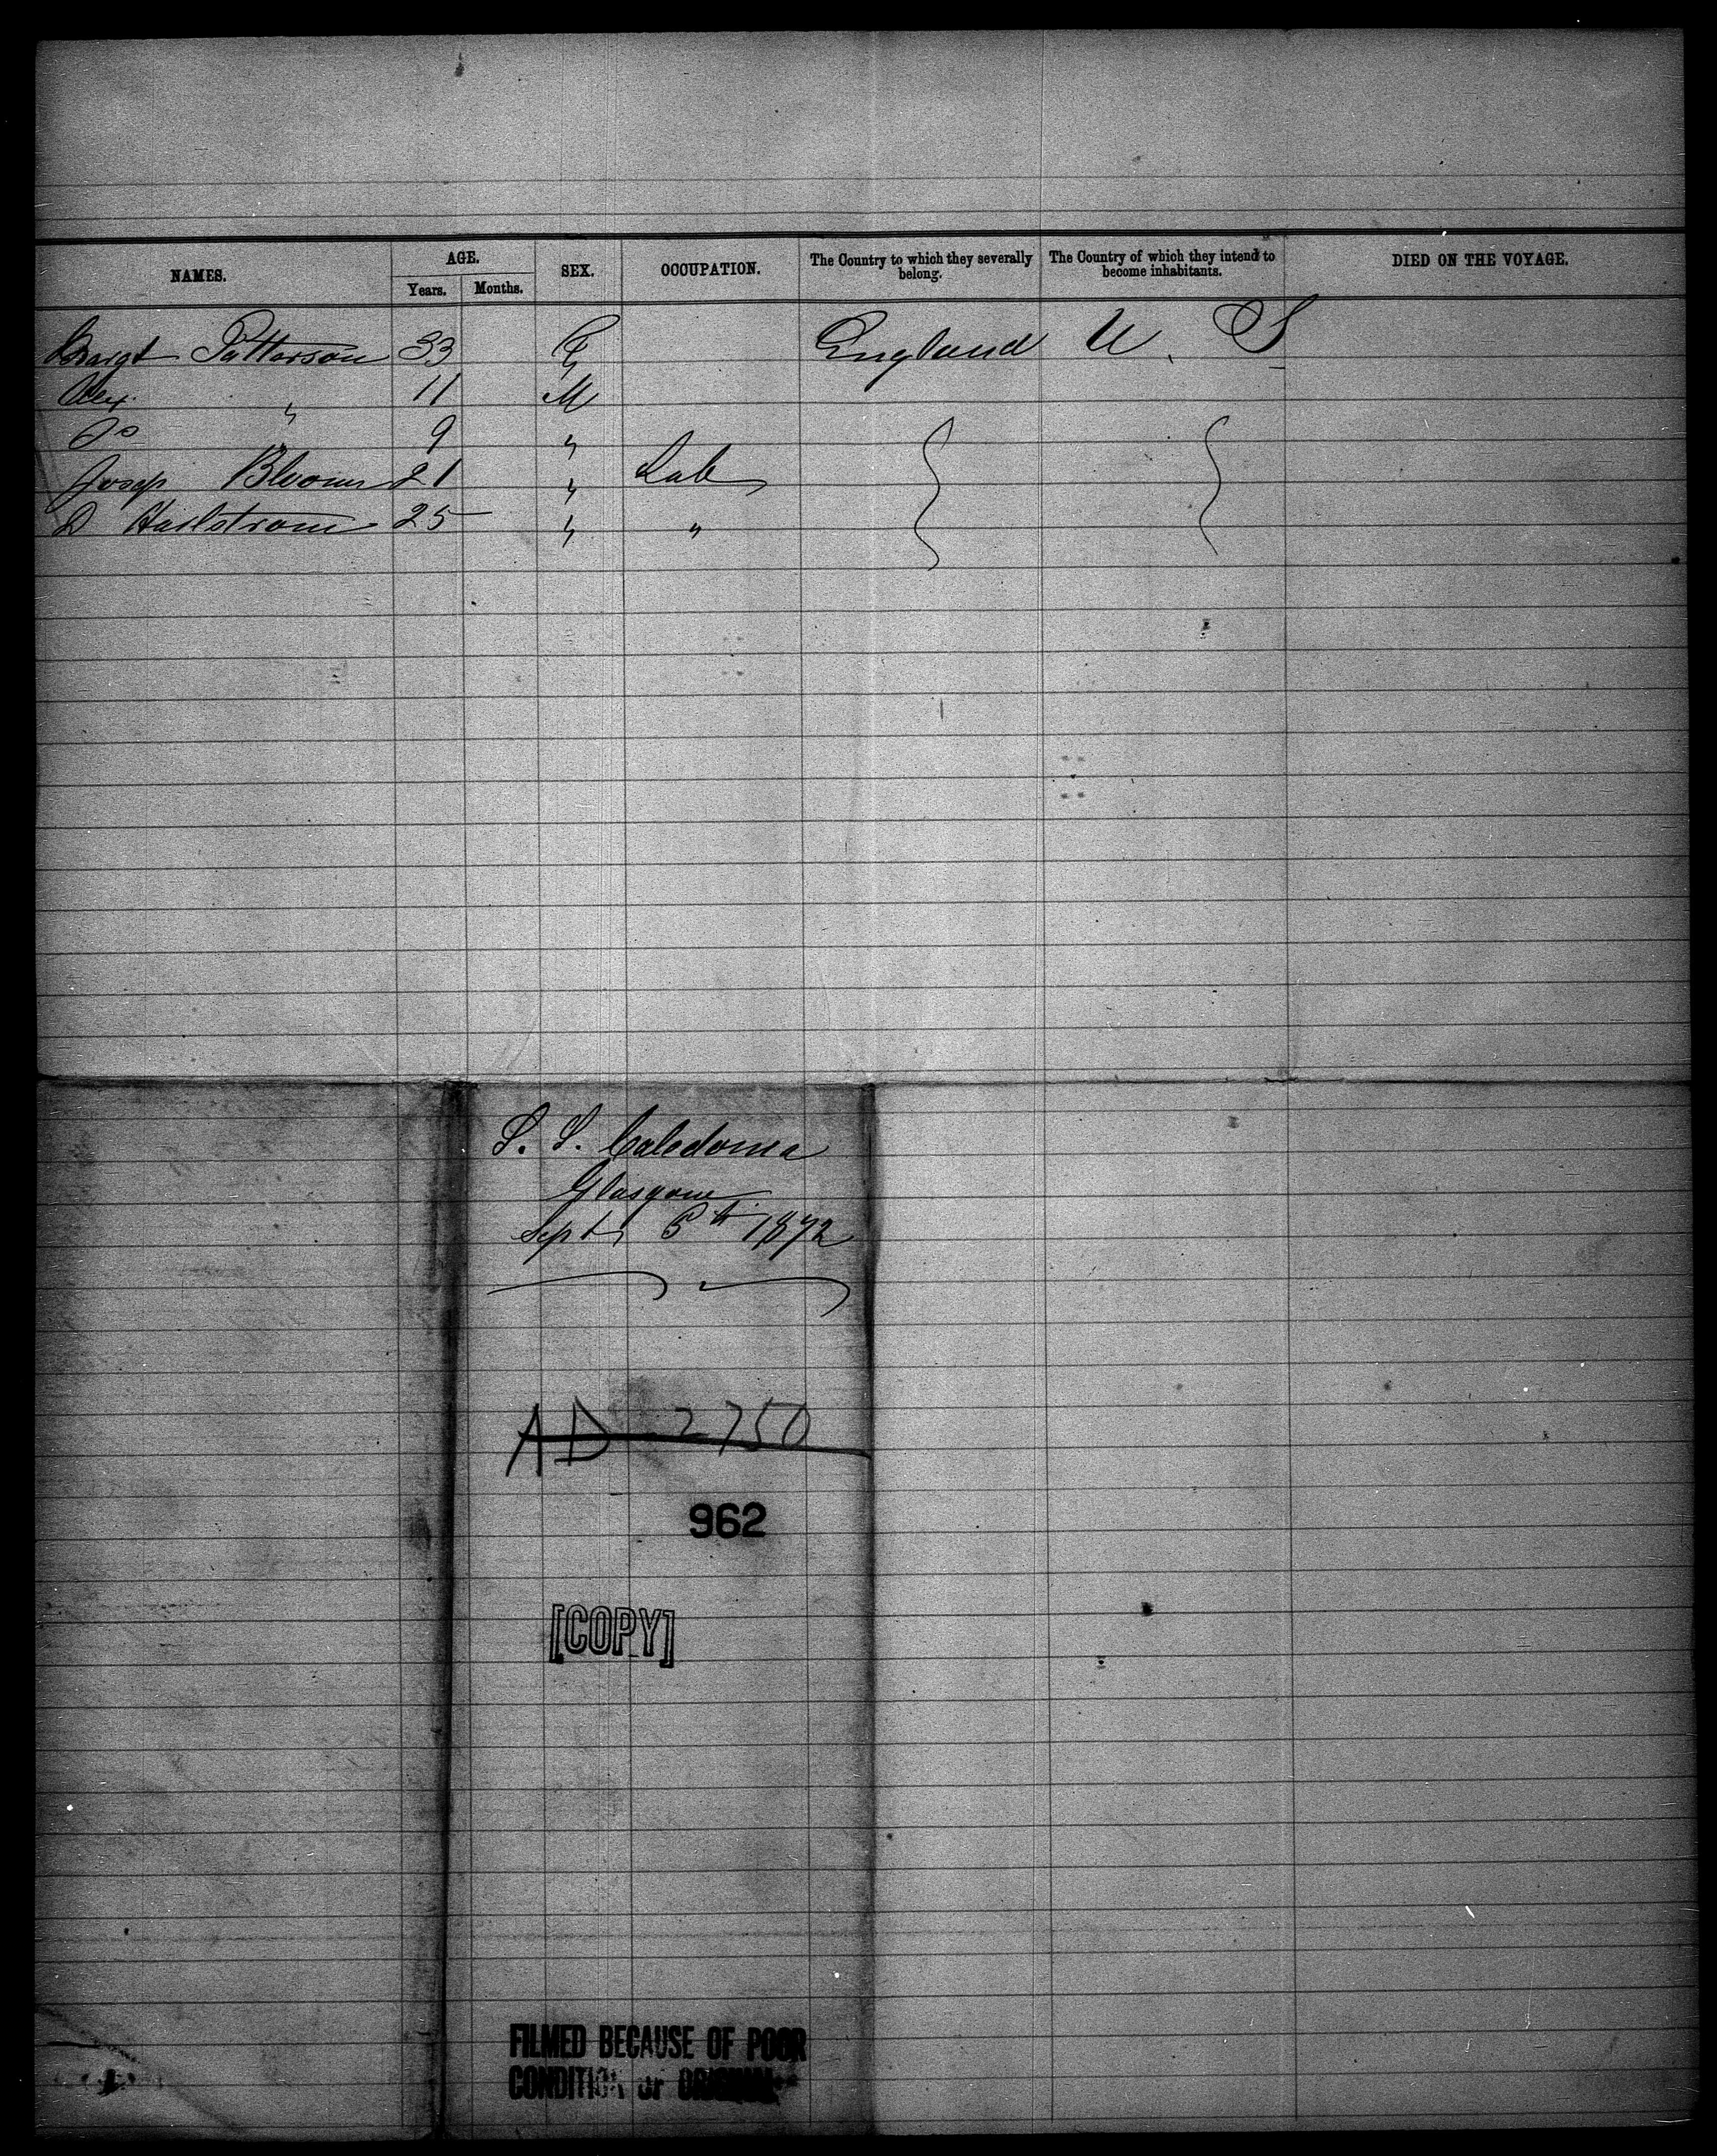 NAMES. AGE. SEX. OCCUPATION. The Country to which they severally belong. The Country of which they intend to become inhabitants. DIED ON THE VOYAGE.
Years. Months.
Margt Patterson 33 F England U. S
Alex. " 11 M
Jo 9 "
Josep Bloom 21 " Lab
D Hailstrom 25 " "
S. S. Caledonia
Glasgow
Sept. 5th 1872
AD 2750
962
[COPY]
FILMED BECAUSE OF POOR
CONDITION OF ORIGINAL